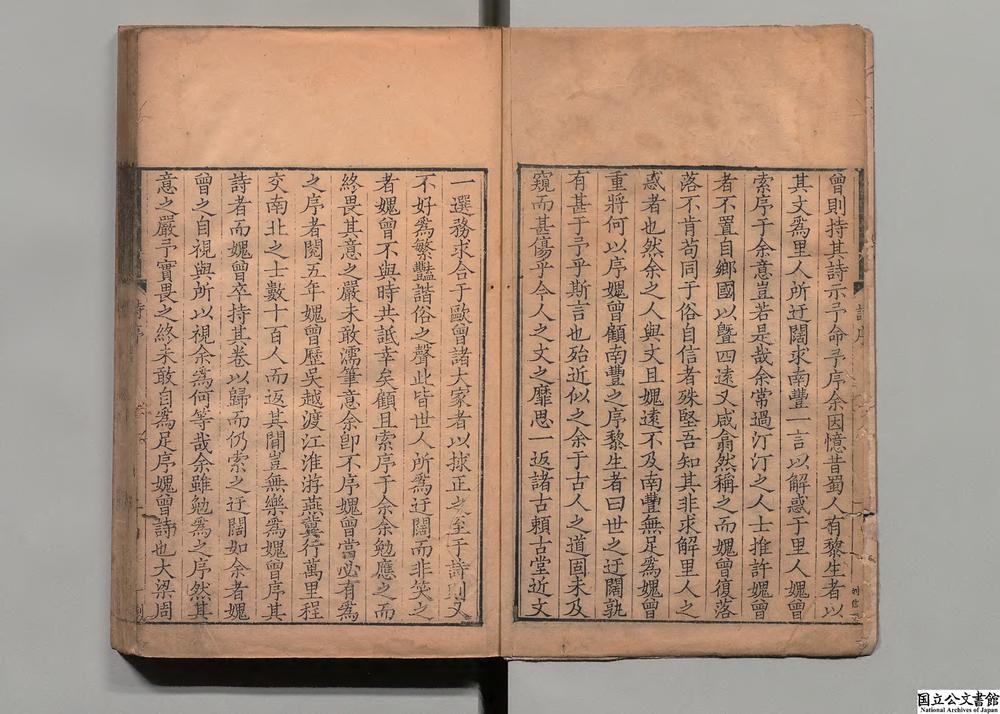 曾則持其詩示予命予序余因憶昔蜀人有黎生者以
其文爲里人所迂闊求南豐一言以解惑于里人媿曾
索序于余意豈若是哉余常過汀汀之人士推許媿曾
者不置自鄉國以暨四遠又咸翕然稱之而媿曾復落
落不肯苟同于俗自信者殊堅吾知其非求解里人之
惑者也然余之人與文且媿遠不及南豐無足爲媿曾
重將何以序媿曾顧南豐之序黎生者曰世之迂闊孰
有甚于予乎斯言也殆近似之余于古人之道固未及
窺而甚傷乎今人之文之靡思一返諸古賴古堂近文
一選務求合于歐曾諸大家者以捄正之至于詩則又
不好爲繁豔諧俗之聲此皆世人所爲迂闊而非笑之
者媿曾不與時共詆幸矣顧且索序于余余勉應之而
終畏其意之嚴未敢濡筆意余卽不序媿曾當必有爲
之序者閱五年媿曾歷吳越渡江淮游燕冀行萬里程
交南北之士數十百人而返其間豈無樂爲媿曾序其
詩者而媿曾卒持其卷以歸而仍索之迂闊如余者媿
曾之自視與所以視余爲何等哉余雖勉爲之序然其
意之嚴予實畏之終未敢自爲足序媿曾詩也大梁周
詩序
国立公文書館
National Archives of Japan